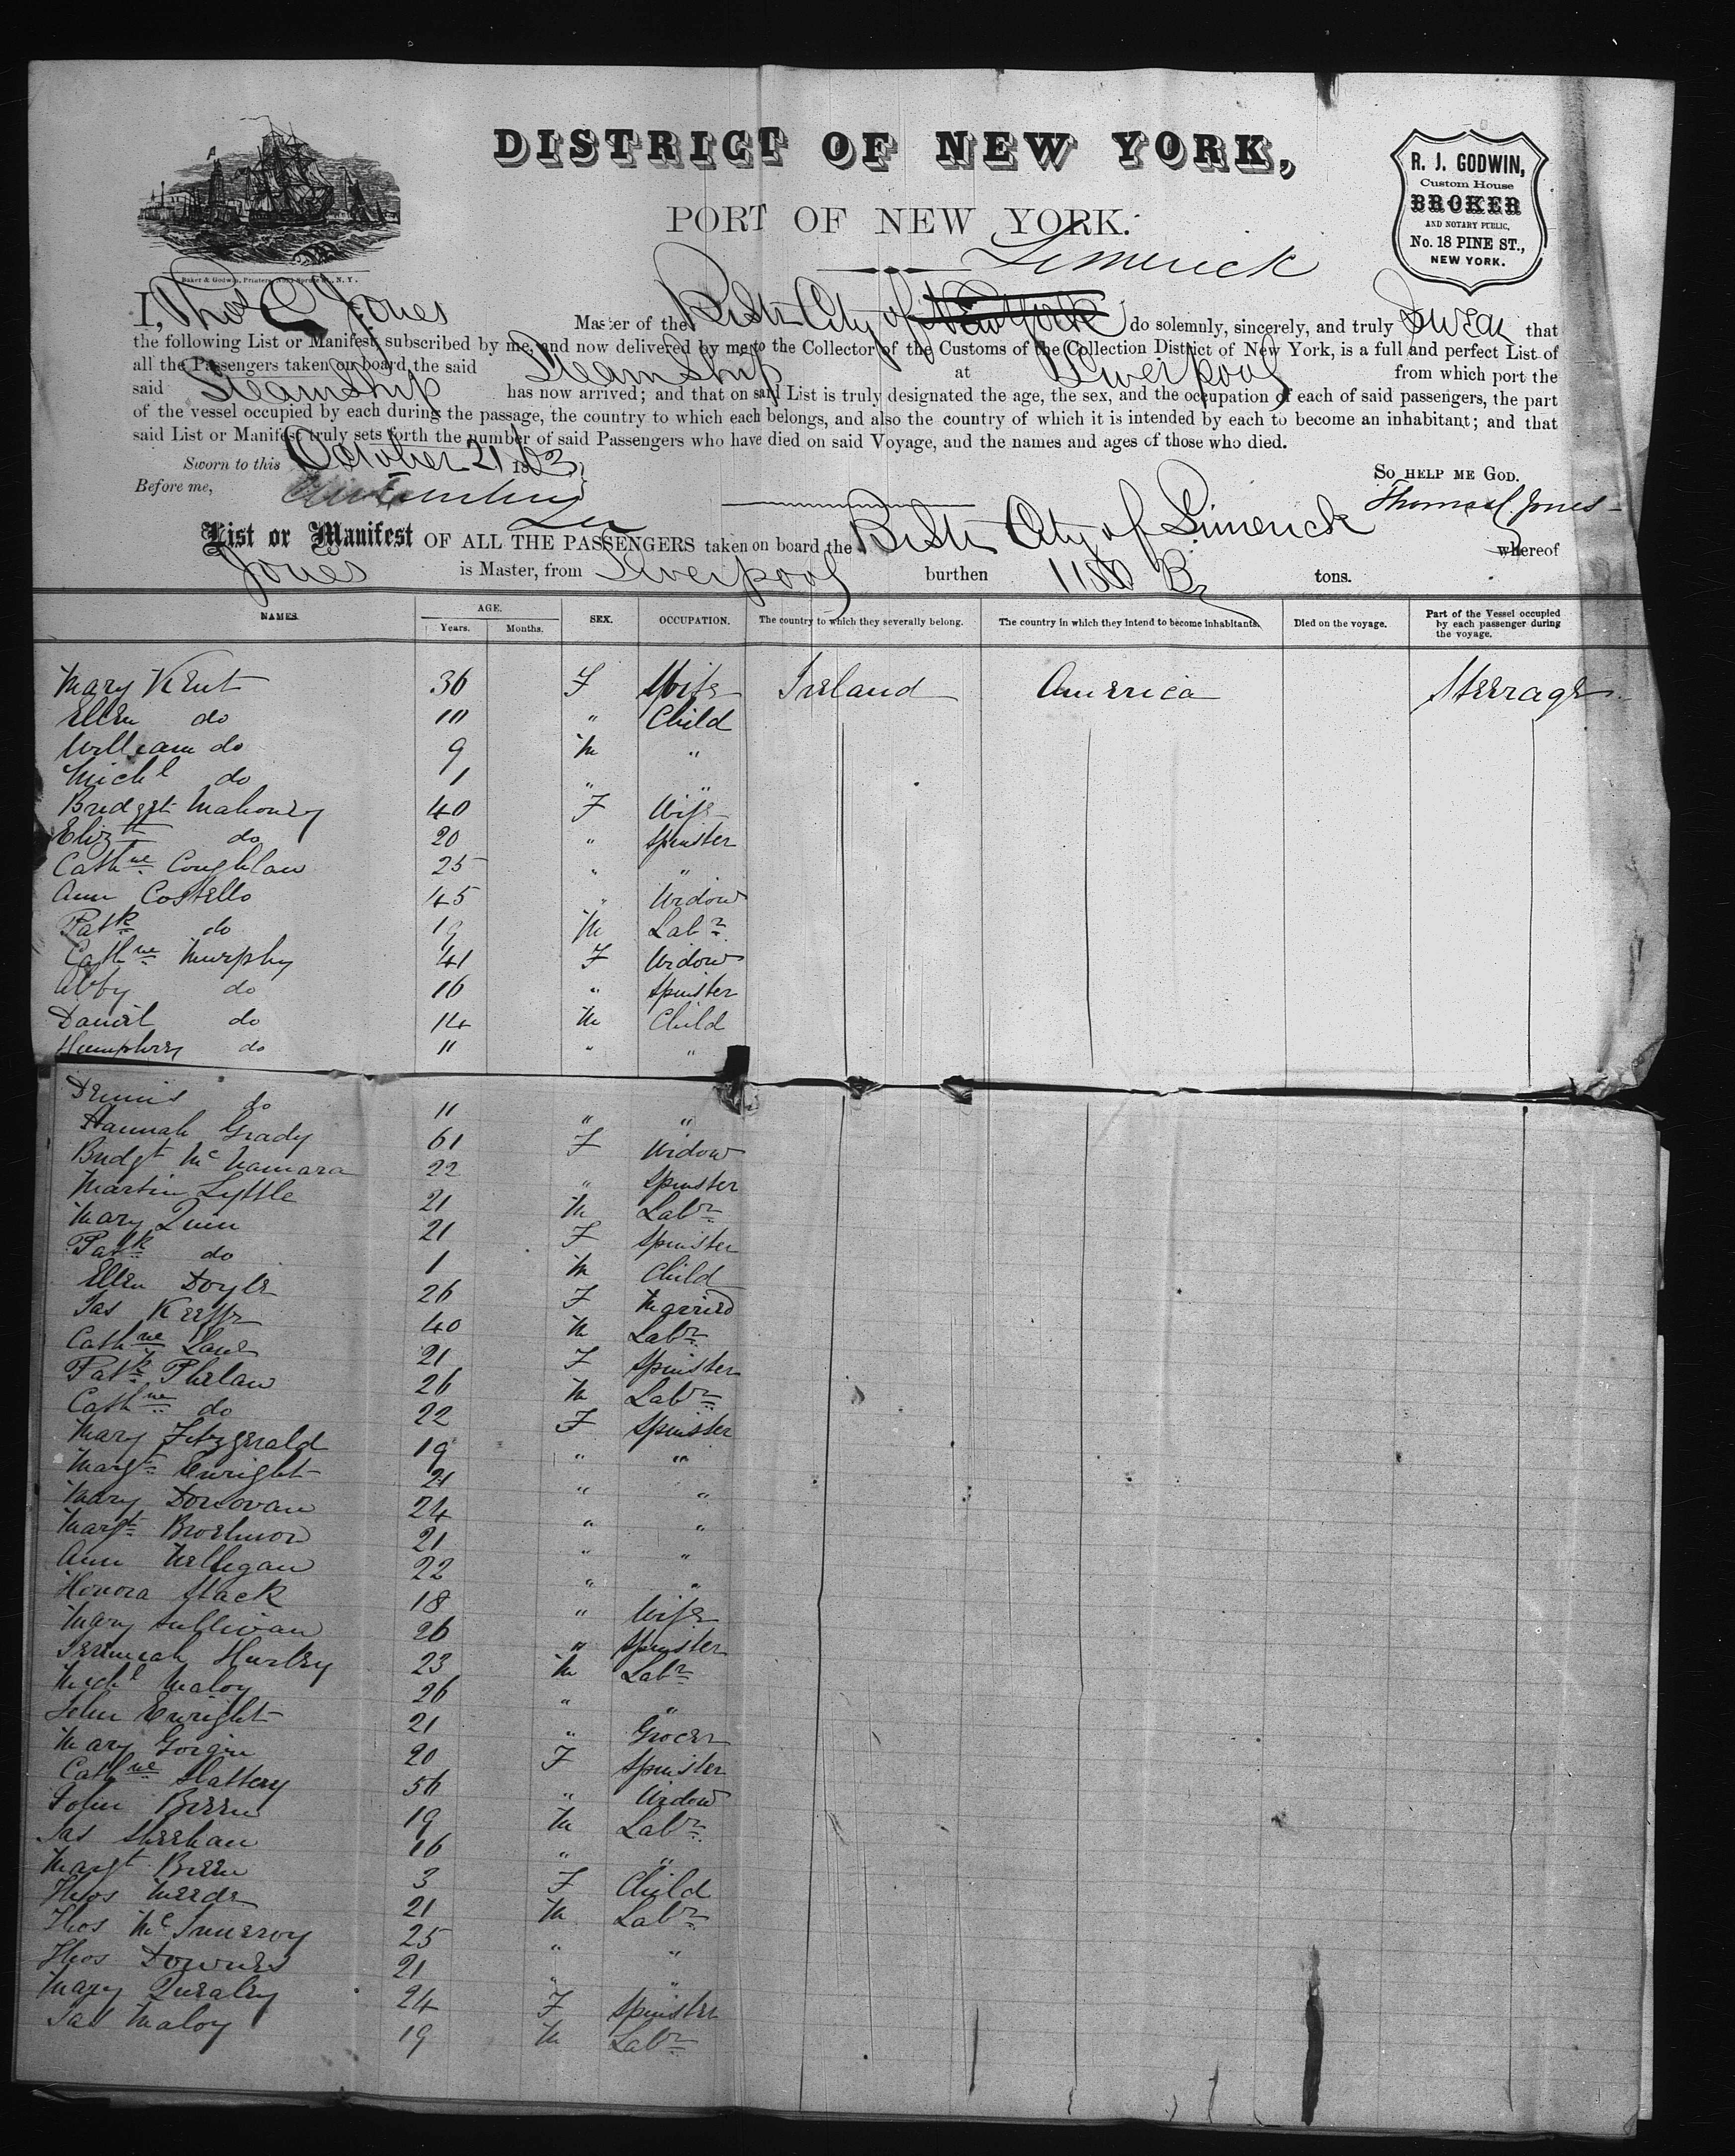 DISTRICT OF NEW YORK,
PORT OF NEW YORK.
R. J. GODWIN,
Custom House
BROKER
AND NOTARY PUBLIC,
No. 18 PINE ST.,
NEW YORK.
Baker & Godwin, Printers, No. 1 Spruce St., N. Y.
Limerick
I, Thos C Jones Master of the Br Str City of New York do solemnly, sincerely, and truly Swear that
the following List or Manifest, subscribed by me, and now delivered by me to the Collector of the Customs of the Collection District of New York, is a full and perfect List of
all the Passengers taken on board the said Steamship at Liverpool from which port the
said Steamship has now arrived; and that on said List is truly designated the age, the sex, and the occupation of each of said passengers, the part
of the vessel occupied by each during the passage, the country to which each belongs, and also the country of which it is intended by each to become an inhabitant; and that
said List or Manifest truly sets forth the number of said Passengers who have died on said Voyage, and the names and ages of those who died.
Sworn to this October 21 1863 So HELP ME GOD.
Before me, Thomas C. Jones
List or Manifest OF ALL THE PASSENGERS taken on board the Br Str City of Limerick whereof
Jones is Master, from Liverpool burthen tons.
NAMES. AGE. Years. Months. SEX. OCCUPATION. The country to which they severally belong. The country in which they intend to become inhabitants. Died on the voyage. Part of the Vessel occupied by each passenger during the voyage.
Mary Kent 36 F Wife Ireland America Steerage
Ellen do 10 " Child
William do 9 M "
Michl do 1 " "
Bridget Mahoney 40 F Wife
Elizth do 20 " Spinster
Cathne Coughlan 25 " "
Ann Costello 45 " Widow
Patk do 19 M Labr
Cathne Murphy 41 F Widow
Abby do 16 " Spinster
Daniel do 14 M Child
Humphrey do 11 " "
Dennis do 11 " "
Hannah Grady 61 F Widow
Bridgt McNamara 22 " Spinster
Martin Lyttle 21 M Labr
Mary Quin 21 F Spinster
Patk do 1 M Child
Ellen Doyle 26 F Married
Jas Keeffe 40 M Labr
Cathne Lane 21 F Spinster
Patk Phelan 26 M Labr
Cathne do 22 F Spinster
Mary Fitzgerald 19 " "
Margt Enright 21 " "
Mary Donovan 24 " "
Margt 21 " "
Ann Nelligan 22 " "
Honora Stack 18 " Wife
Mary Sullivan 26 " Spinster
Jeremiah Hurley 23 M Labr
Michl Maloy 26 " "
John Enright 21 " Grocer
Mary 20 F Spinster
Cathne Slattery 56 " Widow
John Breen 19 M Labr
Jas Sheehan 16 " "
Margt Breen 3 F Child
Thos Meede 21 M Labr
Thos McInerroy 25 " "
Thos Downes 21 " "
Mary Quealey 24 F Spinster
Jas Maloy 19 M Labr